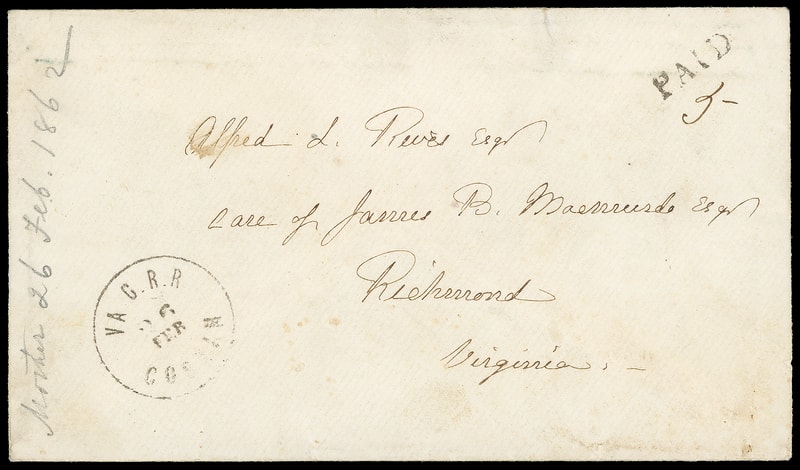 PAID
5-
Alfred L. Rives Esqr
care of James B. Macmurdo Esqr
Richmond
Virginia. -
VA C. R. R
26
FEB
Mother 26 Feb. 1862